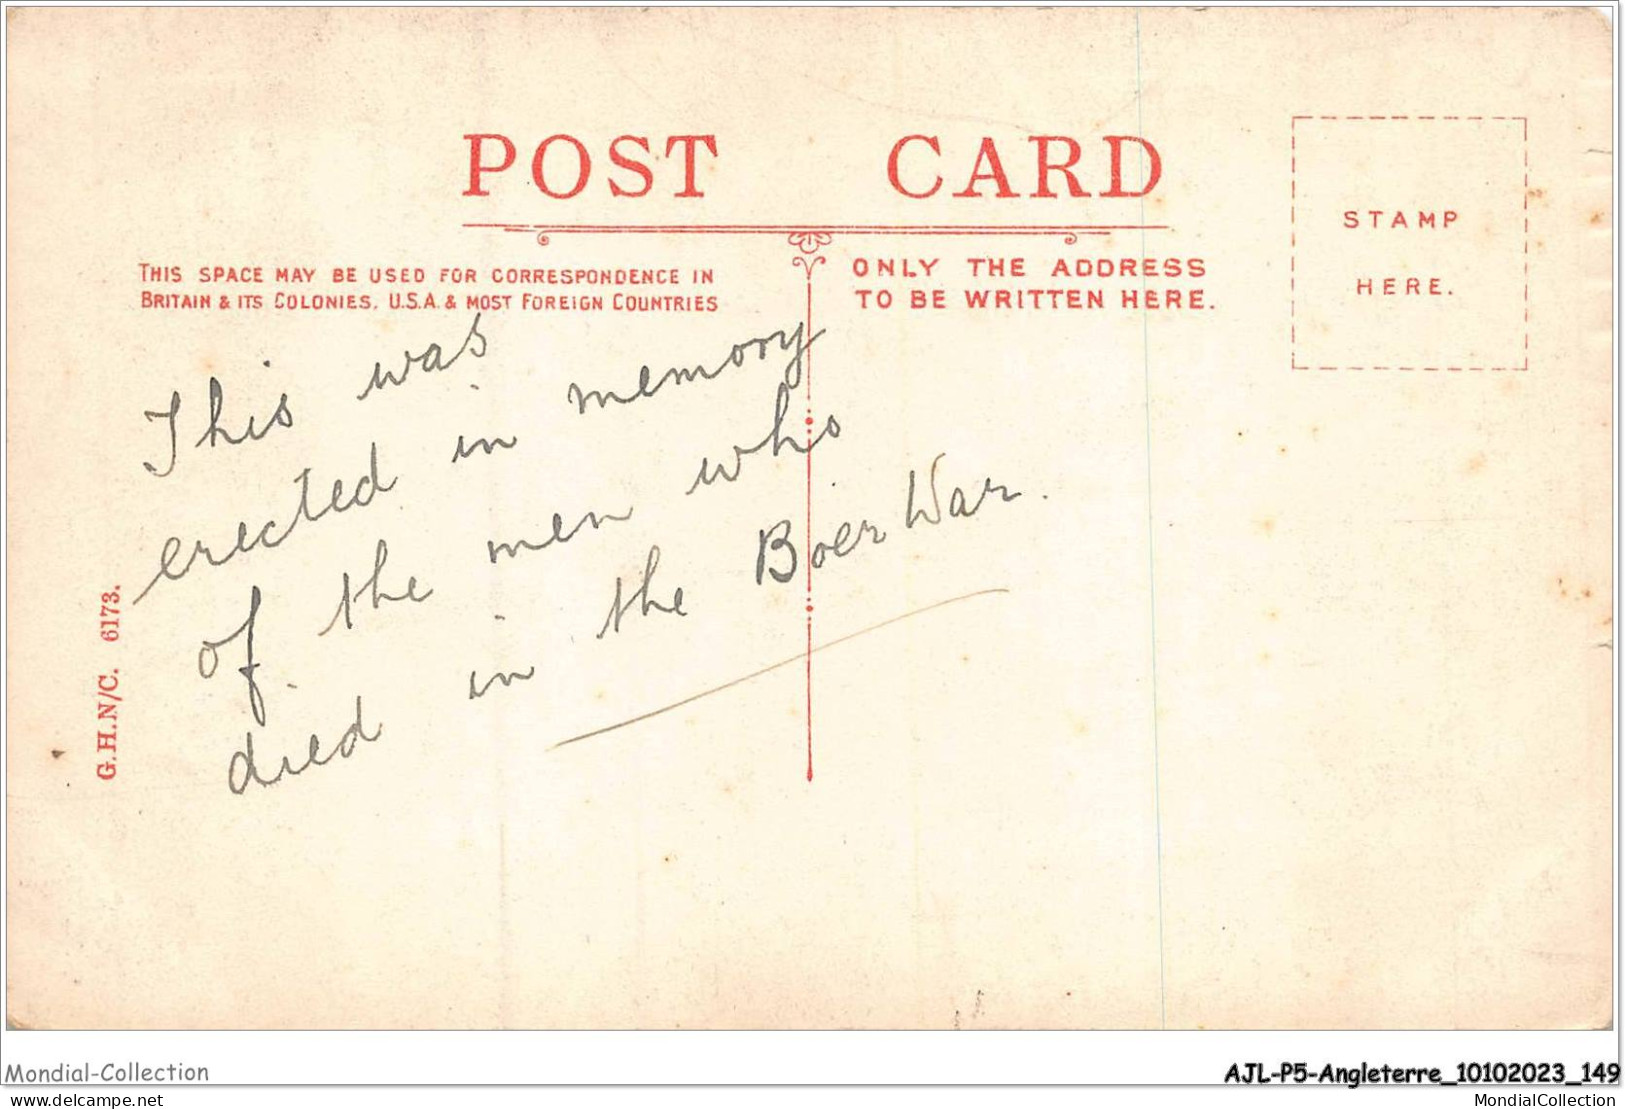 POST CARD
THIS SPACE MAY BE USED FOR CORRESPONDENCE IN
BRITAIN & ITS COLONIES, U.S.A. & MOST FOREIGN COUNTRIES
ONLY THE ADDRESS
TO BE WRITTEN HERE.
STAMP
HERE.
This was
erected in memory
of the men who
died in the Boer War.
G.H.N/C. 6173.
Mondial-Collection
AJL-P5-Angleterre_10102023_149
delcampe.net
MondialCollection